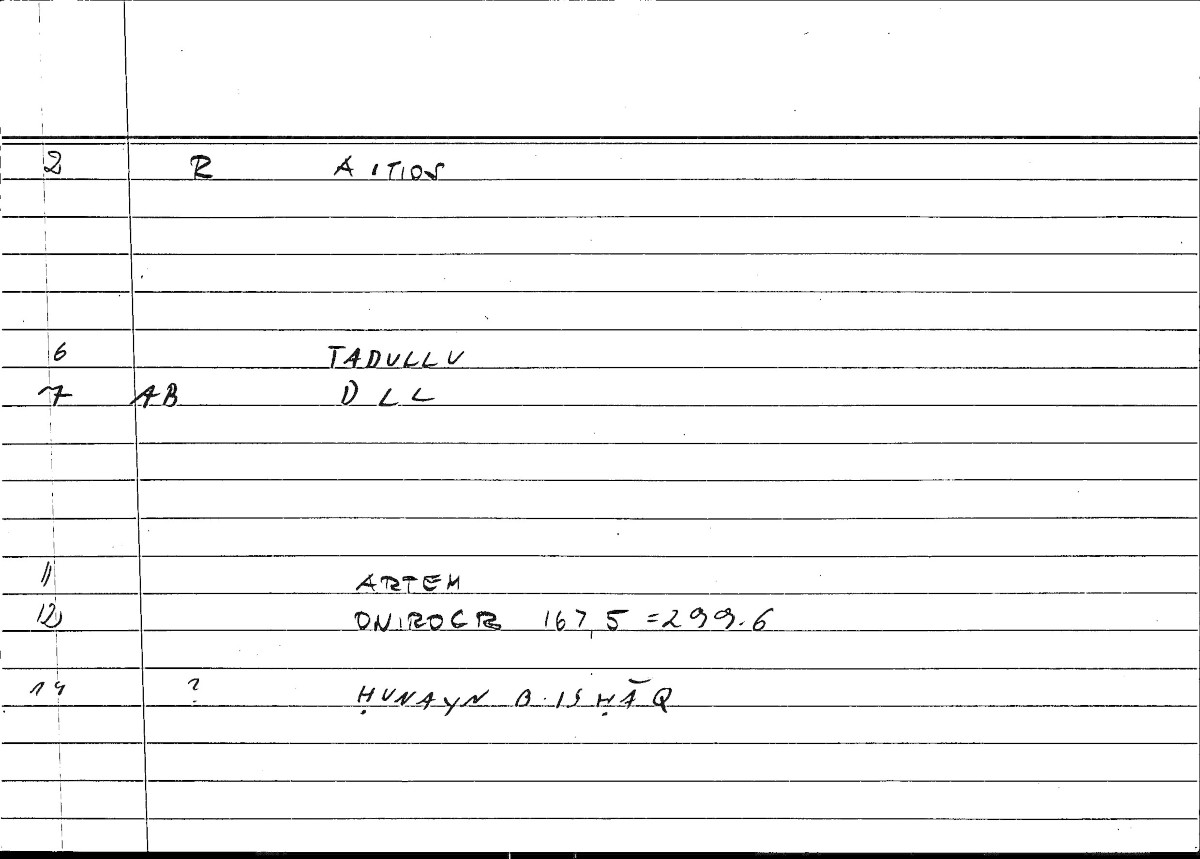 2 R AITION
6 TADULLU
7 AB DLL
11 ARTEM
12 ONIROCR 167,5 =299.6
14 ? ḤUNAYN B. ISḤĀQ